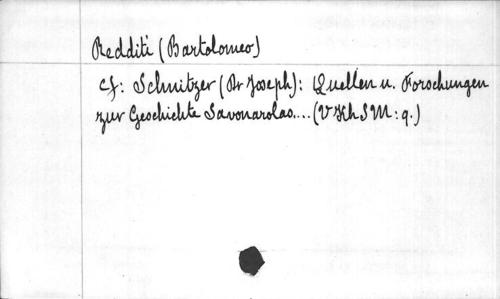 Redditi (Bartolomeo)
cf: Schnitzer (Dr Joseph): Quellen u. Forschungen
zur Geschichte Savonarolas.... (VKhSM: q.)